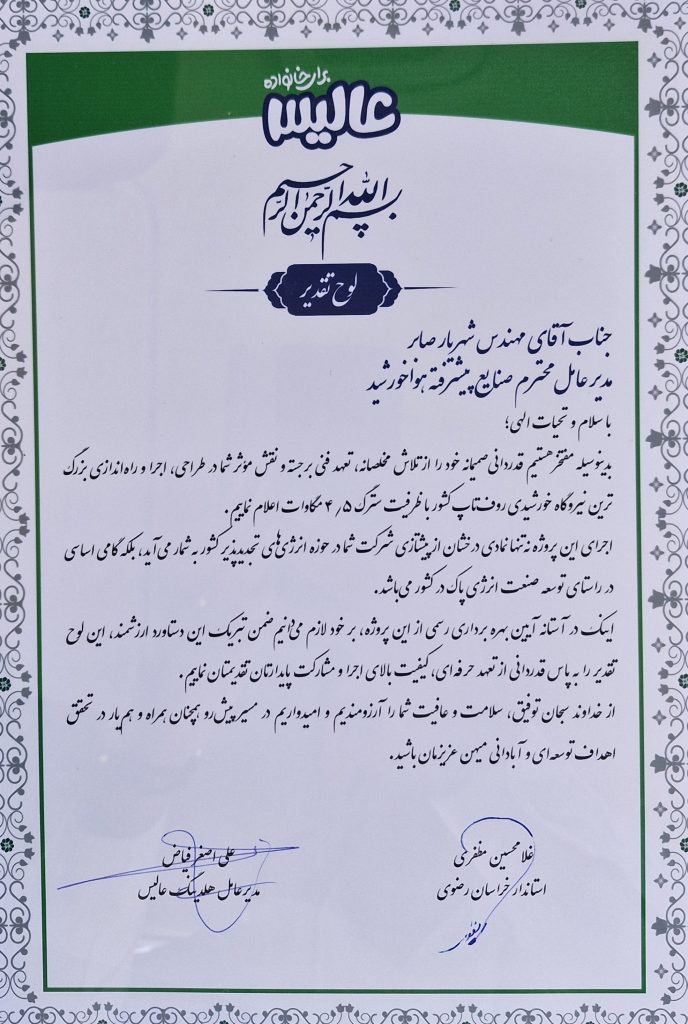 برای خانواده
عالیس
بسم الله الرحمن الرحیم
لوح تقدیر
جناب آقای مهندس شهریار صابر
مدیر عامل محترم صنایع پیشرفته هواخورشید
با سلام و تحیات الهی؛
بدینوسیله مفتخر هستیم قدردانی صمیمانه خود را از تلاش مخلصانه، تعهد فنی برجسته و نقش مؤثر شما در طراحی، اجرا و راه‌اندازی بزرگ
ترین نیروگاه خورشیدی روف‌تاپ کشور با ظرفیت سترگ ۴٫۵ مگاوات اعلام نماییم.
اجرای این پروژه نه تنها نمادی درخشان از پیشتازی شرکت شما در حوزه انرژی‌های تجدیدپذیر کشور به شمار می‌آید، بلکه گامی اساسی
در راستای توسعه صنعت انرژی پاک در کشور می‌باشد.
اینک در آستانه آیین بهره برداری رسمی از این پروژه، بر خود لازم می‌دانیم ضمن تبریک این دستاورد ارزشمند، این لوح
تقدیر را به پاس قدردانی از تعهد حرفه‌ای، کیفیت بالای اجرا و مشارکت پایدارتان تقدیمتان نماییم.
از خداوند سبحان توفیق، سلامت و عافیت شما را آرزومندیم و امیدواریم در مسیر پیش‌رو همچنان همراه و هم‌یار در تحقق
اهداف توسعه‌ای و آبادانی میهن عزیزمان باشید.
غلامحسین مظفری
استاندار خراسان رضوی
علی اصغر فیاض
مدیر عامل هلدینگ عالیس